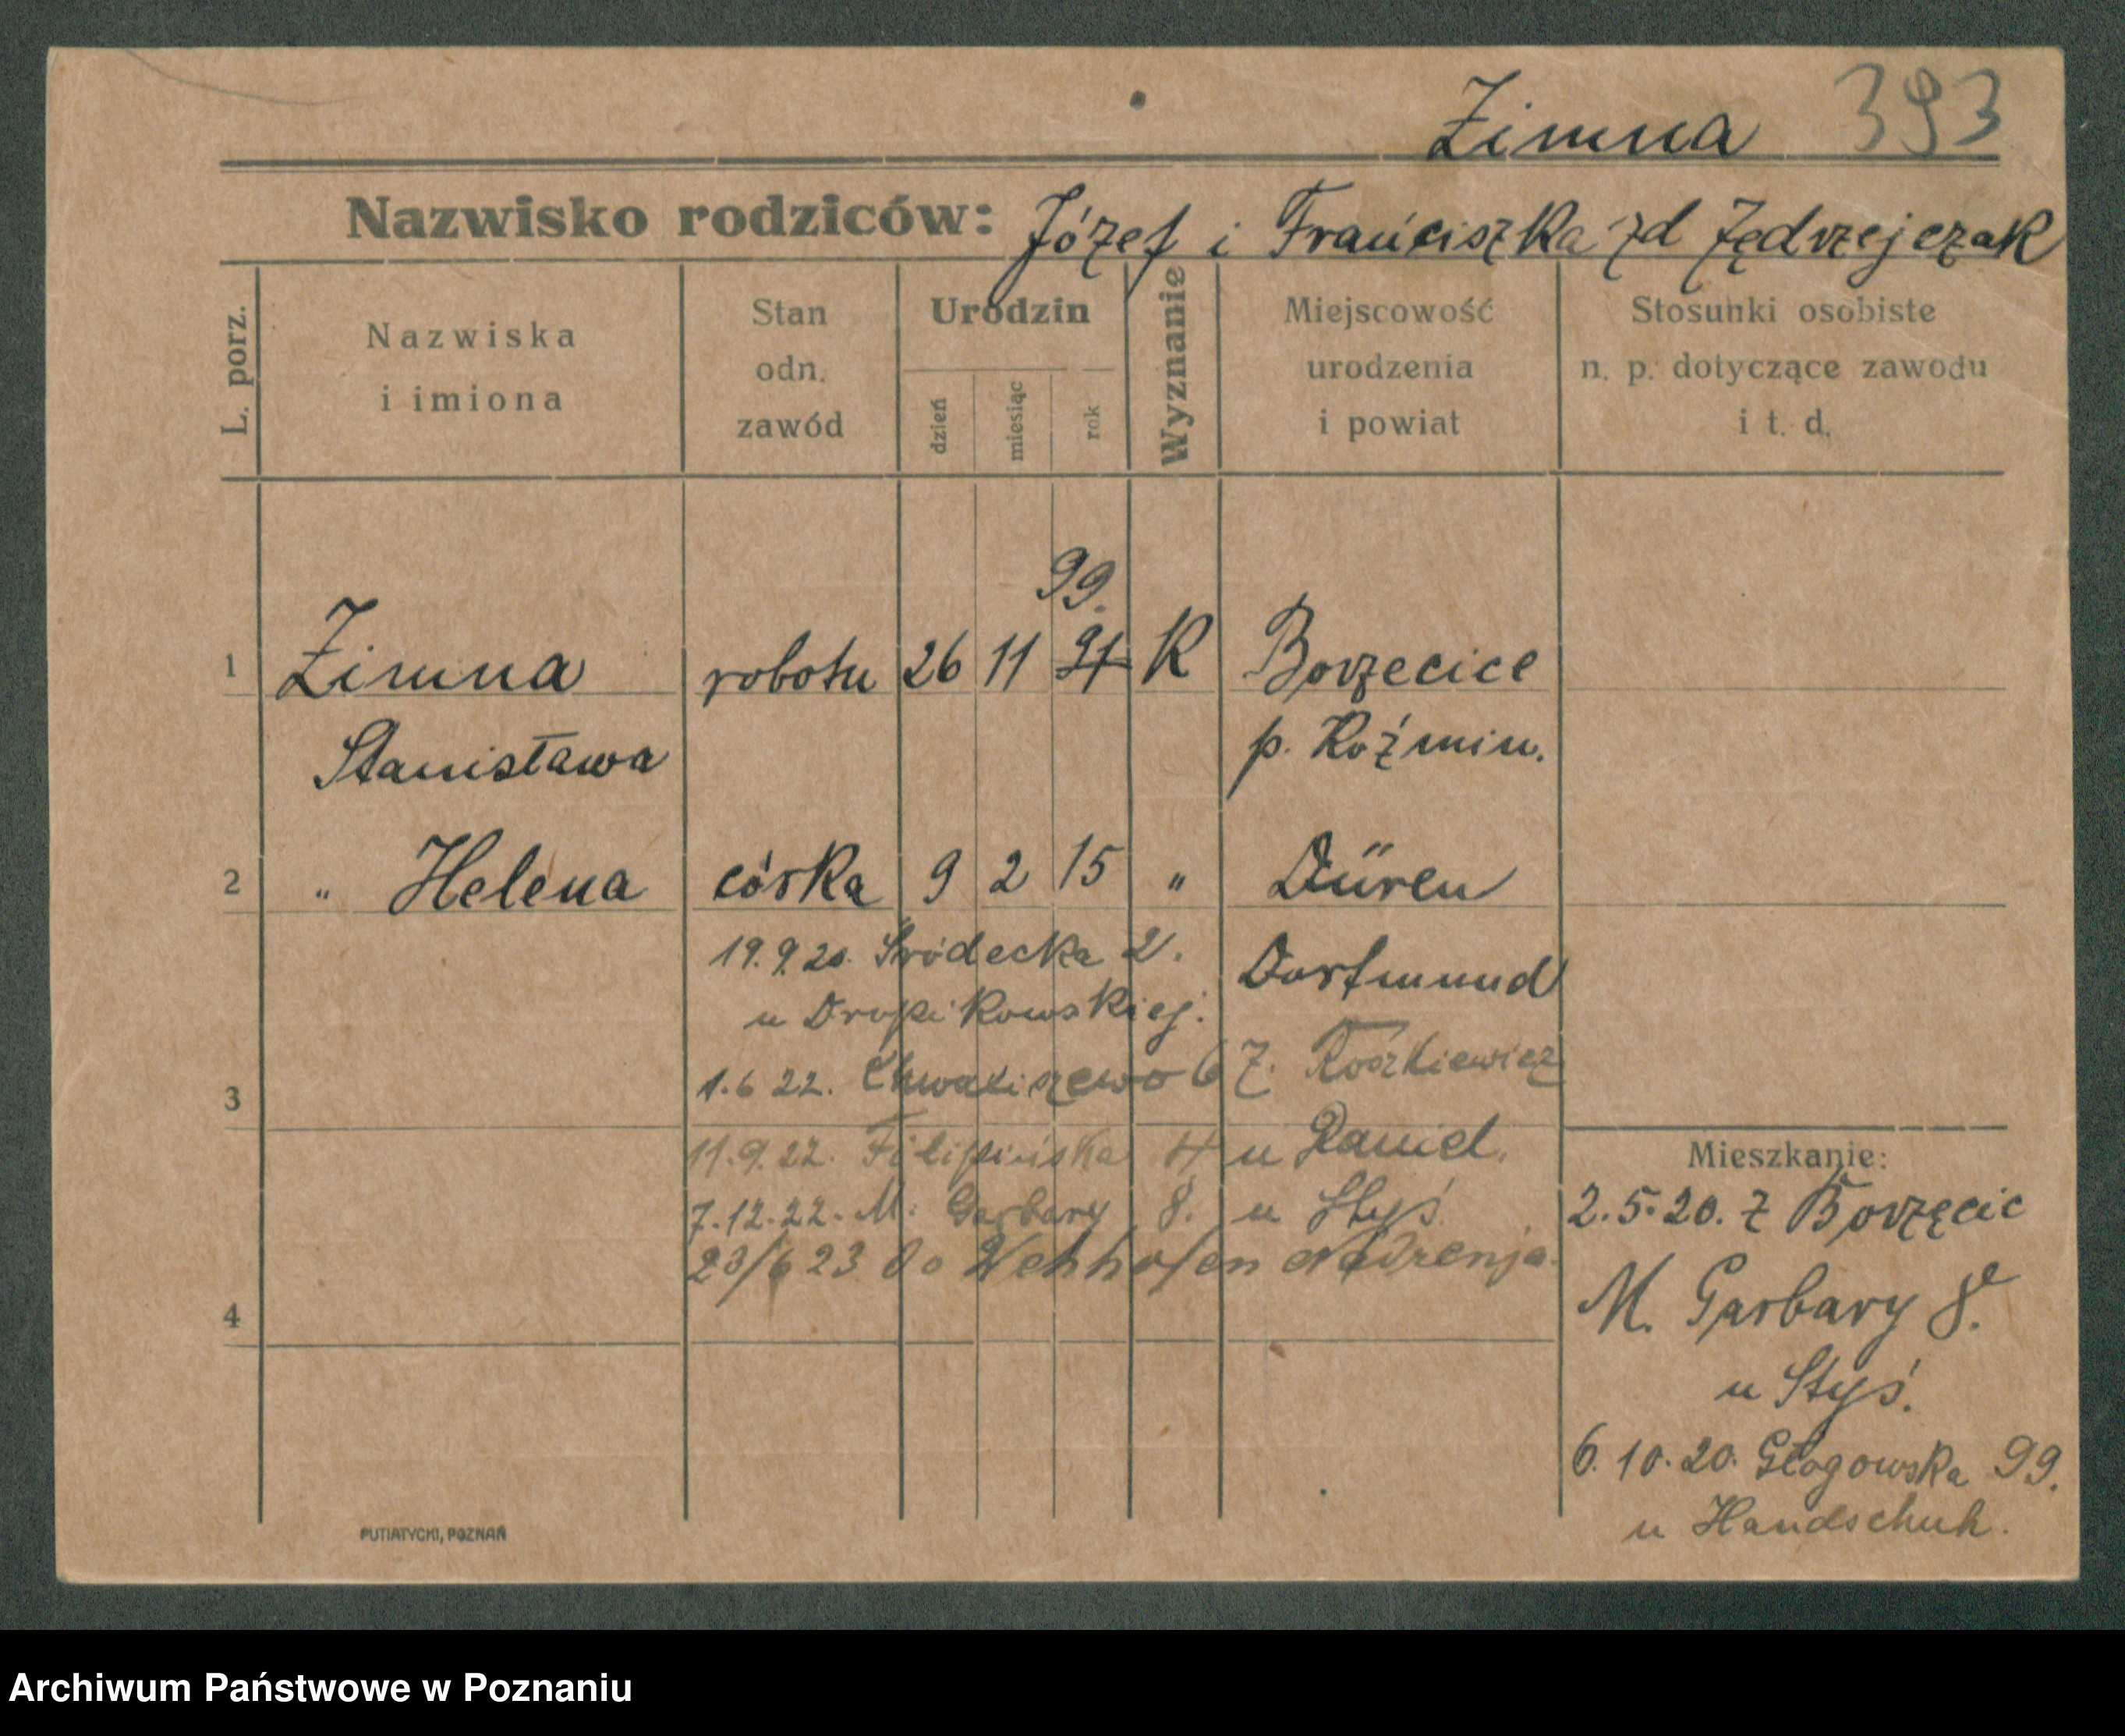 Zimna 393
Nazwisko rodziców: Józef i Franciszka zd Jędrzejczak
L. porz.
Nazwiska
i imiona
Stan
odn.
zawód
Urodzin
dzień
miesiąc
rok
Wyznanie
Miejscowość
urodzenia
i powiat
Stosunki osobiste
n. p. dotyczące zawodu
i t. d.
99.
1 Zimna robotn 26 11 91 K Borzecice
Stanisława p. Koźmin.
2 " Helena córka 9 2 15 " Düren
19.9.20. Śródecka 2. Dortmund
u Dropikowskiej.
3 1.6 22. Chwaliszewo 67. Roszkiewicz
11.9.22. Filipińska 4 u Daniel.
7.12.22. M. Garbary 8. u Styś
23/6 23 do Wehhofen Nadrenja.
4
Mieszkanie:
2.5.20. z Borzęcic
M. Garbary 8.
u Styś.
6.10.20. Głogowska 99.
u Handschuh.
PUTIATYCKI, POZNAŃ
Archiwum Państwowe w Poznaniu